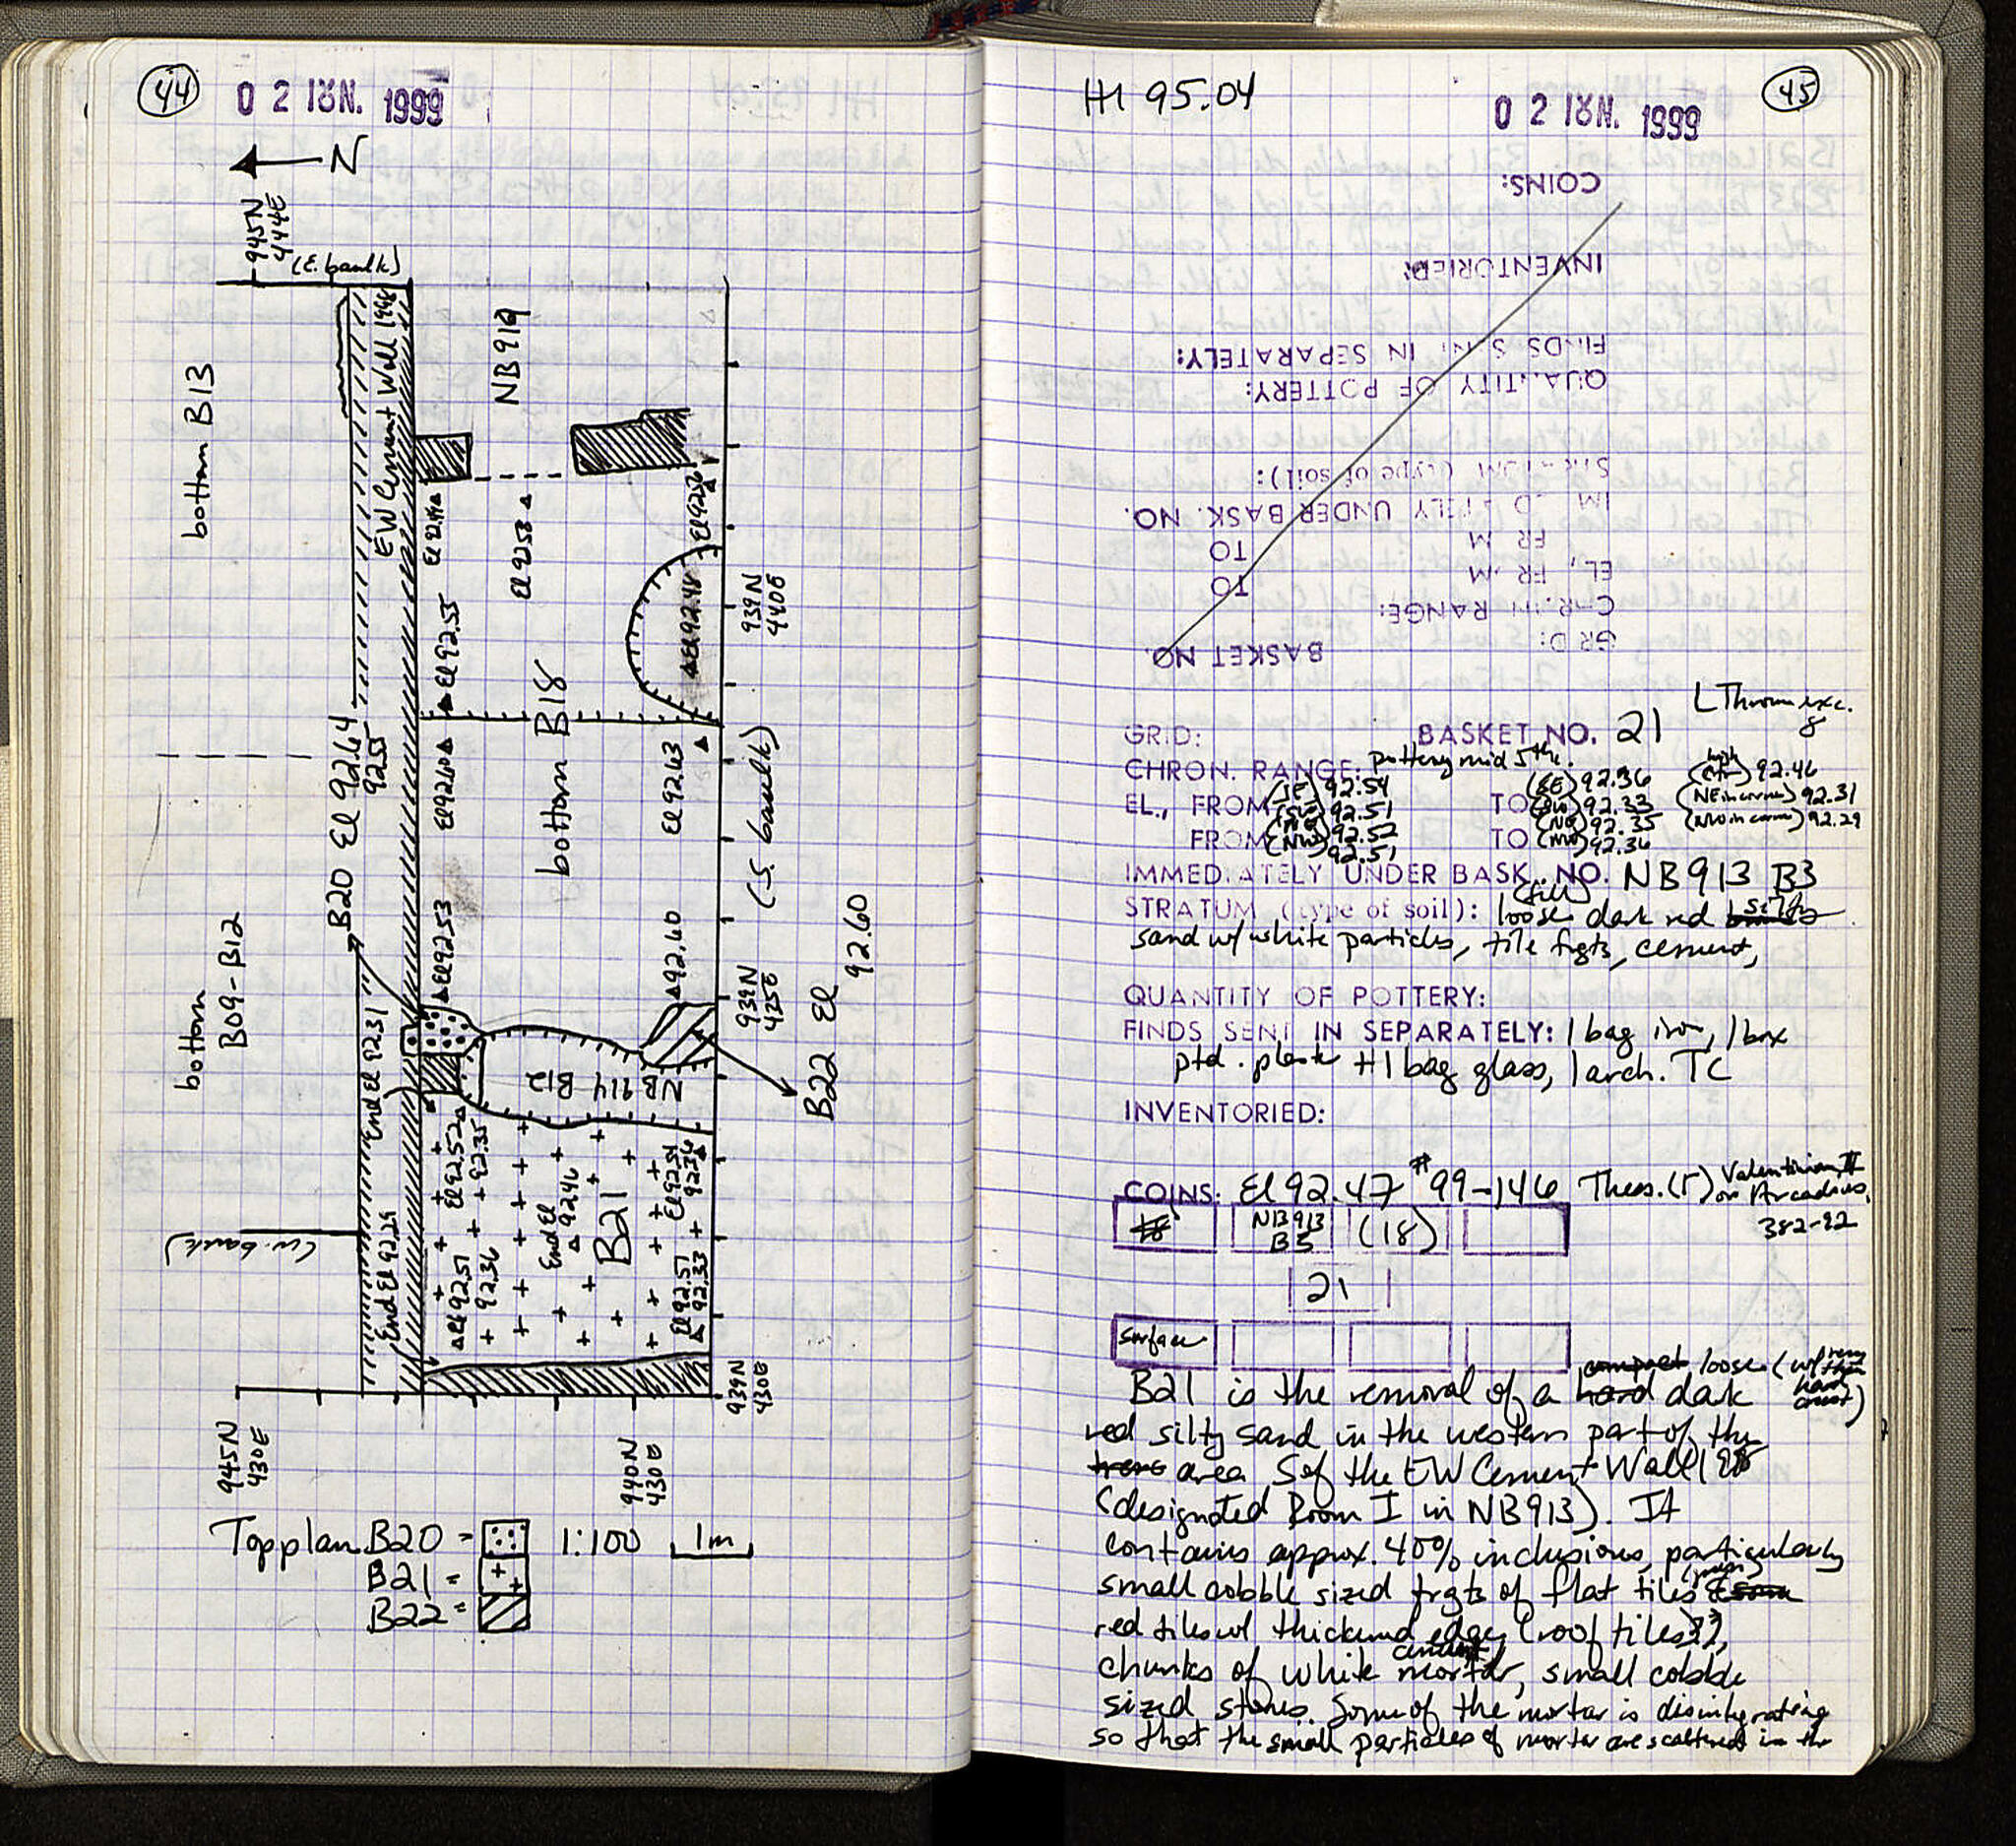 44
02 ΙΟΥΝ. 1999
N
945N
444E
(E. baulk)
bottom B13
EW Cement Wall 1998
NB919
El 92.53
El 92.55
El 92.48
939N
440E
B20 El 92.64
92.55
El 92.60
bottom B18
El 92.63
(S. baulk)
bottom
B09-B12
El 92.53
92.60
End El 92.31
NB 914 B12
B22 El
92.60
(w. baulk)
End El 92.29
El 92.52
92.35
El 92.51
92.36
End El
92.46
B21
El 92.54
92.36
El 92.51
92.33
939N
430E
945N
430E
940N
430E
Top plan B20 = 1:100 1m
B21 =
B22 =
HH 95.04
02 ΙΟΥΝ. 1999
45
COINS:
INVENTORIED:
FINDS SENT IN SEPARATELY:
QUANTITY OF POTTERY:
STRATUM (type of soil):
IMMEDIATELY UNDER BASK. NO.
FROM TO
EL., FROM TO
CHRON. RANGE:
GRID: BASKET NO.
GRID: BASKET NO. 21
CHRON. RANGE: pottery mid 5th.
EL., FROM (SE) 92.54 (SW) 92.51 TO (SE) 92.36 (SW) 92.33 (high) 92.46 (NE in corner) 92.31
FROM (NE) 92.52 (NW) 92.51 TO (NE) 92.35 (NW) 92.36 (NW in corner) 92.29
IMMEDIATELY UNDER BASK. NO. NB913 B3
STRATUM (type of soil): loose (fill) dark red silty
sand w/ white particles, tile frgts, cement,
QUANTITY OF POTTERY:
FINDS SENT IN SEPARATELY: 1 bag iron, 1 box
ptd. plaster + 1 bag glass, 1 arch. TC
INVENTORIED:
COINS: El 92.47 #99-146 Thess. (r) Valentinian II
or Arcadius,
382-92
18 NB913 B5 (18)
21
surface
compact loose (w/ very thin hard crust)
B21 is the removal of a hard dark
red silty sand in the western part of the
area S of the EW Cement Wall 1998
(designated Room I in NB913). It
contains approx. 40% inclusions, particularly
small cobble sized frgts of flat tiles
red tiles w/ thickened edges (roof tiles??),
cement
chunks of white mortar, small cobble
sized stones. Some of the mortar is disintegrating
so that the small particles of mortar are scattered in the